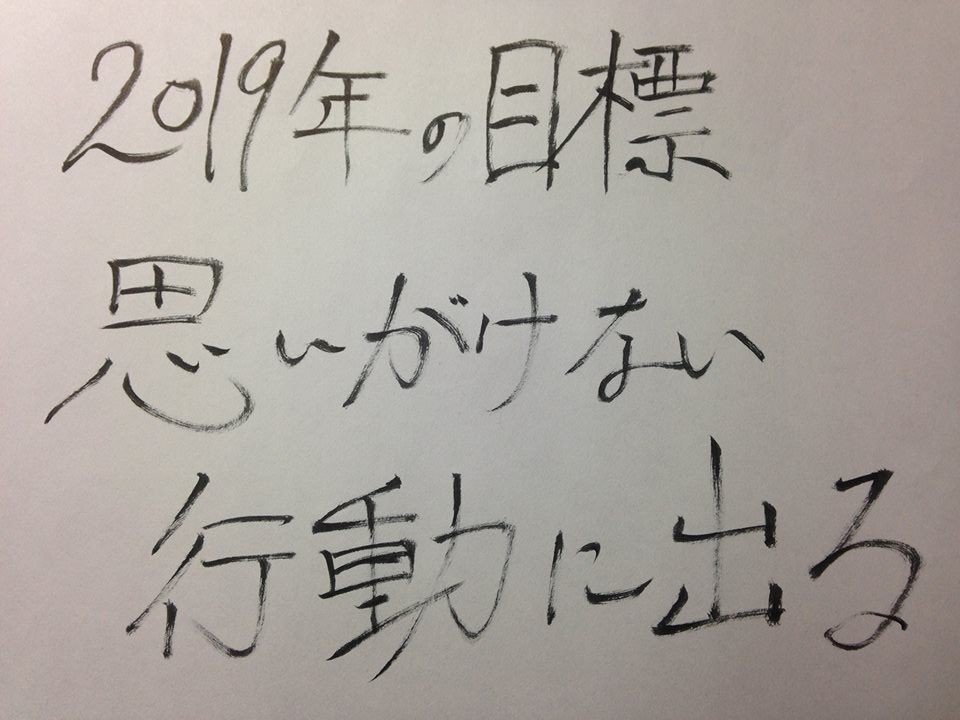 2019年の目標
思いがけない
行動に出る